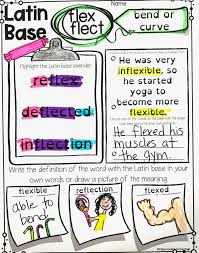 Latin
Base
flex
flect
Name
bend or
curve
Highlight the Latin base lavender
reflex
deflected
inflection
He was very
inflexible, so
he started
yoga to
become more
flexible.
He flexed his
muscles at
the gym.
Write the definition of the word with the Latin base in your
own words or draw a picture of the meaning
flexible
reflection
flexed
able to
bend